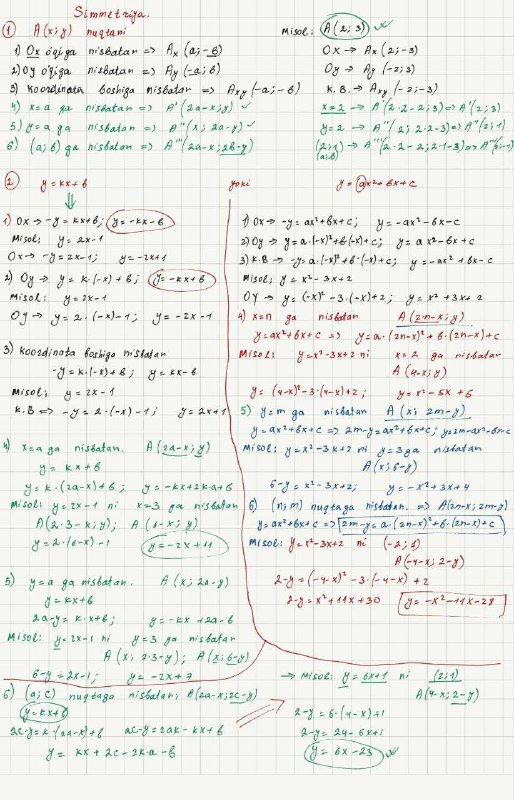 Simmetriya.
① A(x; y) nuqtani
1) Ox o'qiga nisbatan => Ax (a; -b)
2) Oy o'qiga nisbatan => Ay (-a; b)
3) koordinata boshiga nisbatan => Axy (-a; -b)
4) x=a ga nisbatan => A' (2a-x; y) ✓
5) y=a ga nisbatan => A'' (x; 2a-y) ✓
6) (a; b) ga nisbatan => A''' (2a-x; 2b-y)
Misol: A(2; 3) ✓
Ox -> Ax (2; -3)
Oy -> Ay (-2; 3)
K.B. -> Axy (-2; -3)
x=2 -> A' (2·2-2; 3) => A' (2; 3)
y=2 -> A'' (2; 2·2-3) => A'' (2; 1)
(2; 1) -> A''' (2·2-2; 2·1-3) => A'''
(a; b)
② y = kx+b
yoki
y = ax²+bx+c
1) Ox -> -y = kx+b; y = -kx-b
Misol: y = 2x-1
Ox -> -y = 2x-1; y = -2x+1
2) Oy -> y = k·(-x)+b; y = -kx+b
Misol: y = 2x-1
Oy -> y = 2·(-x)-1; y = -2x-1
3) koordinata boshiga nisbatan
-y = k·(-x)+b; y = kx-b
Misol: y = 2x-1
K.B -> -y = 2·(-x)-1; y = 2x+1
4) x=a ga nisbatan. A(2a-x; y)
y = kx+b
y = k·(2a-x)+b; y = -kx+2k·a+b
Misol: y = 2x-1 ni x=3 ga nisbatan
A(2·3-x; y); A(6-x; y)
y = 2·(6-x)-1 y = -2x+11
5) y=a ga nisbatan. A(x; 2a-y)
y = kx+b
2a-y = k·x+b; y = -kx+2a-b
Misol: y = 2x-1 ni y=3 ga nisbatan
A(x; 2·3-y); A(x; 6-y)
6-y = 2x-1; y = -2x+7
6) (a; c) nuqtaga nisbatan; A(2a-x; 2c-y)
y = kx+b
2c-y = k·(2a-x)+b 2c-y = 2ak-kx+b
y = kx+2c-2k·a-b
1) Ox -> -y = ax²+bx+c; y = -ax²-bx-c
2) Oy -> y = a·(-x)²+b·(-x)+c; y = ax²-bx+c
3) K.B -> -y = a·(-x)²+b·(-x)+c; y = -ax²+bx-c
Misol: y = x²-3x+2
Oy -> y = (-x)²-3·(-x)+2; y = x²+3x+2
4) x=n ga nisbatan A(2·n-x; y)
y = ax²+bx+c => y = a·(2n-x)²+b·(2n-x)+c
Misol: y = x²-3x+2 ni x=2 ga nisbatan
A(4-x; y)
y = (4-x)²-3·(4-x)+2; y = x²-5x+6
5) y=m ga nisbatan A(x; 2m-y)
y = ax²+bx+c => 2m-y = ax²+bx+c; y = 2m-ax²-bx-c
Misol: y = x²-3x+2 ni y=3 ga nisbatan
A(x; 6-y)
6-y = x²-3x+2; y = -x²+3x+4
6) (n; m) nuqtaga nisbatan. => A(2n-x; 2m-y)
y = ax²+bx+c => 2m-y = a·(2n-x)²+b·(2n-x)+c
Misol: y = x²-3x+2 ni (-2; 1)
A(-4-x; 2-y)
2-y = (-4-x)²-3·(-4-x)+2
2-y = x²+11x+30 y = -x²-11x-28
-> Misol: y = 6x+1 ni (2; 1)
A(4-x; 2-y)
2-y = 6·(4-x)+1
2-y = 24-6x+1
y = 6x-23 ✓